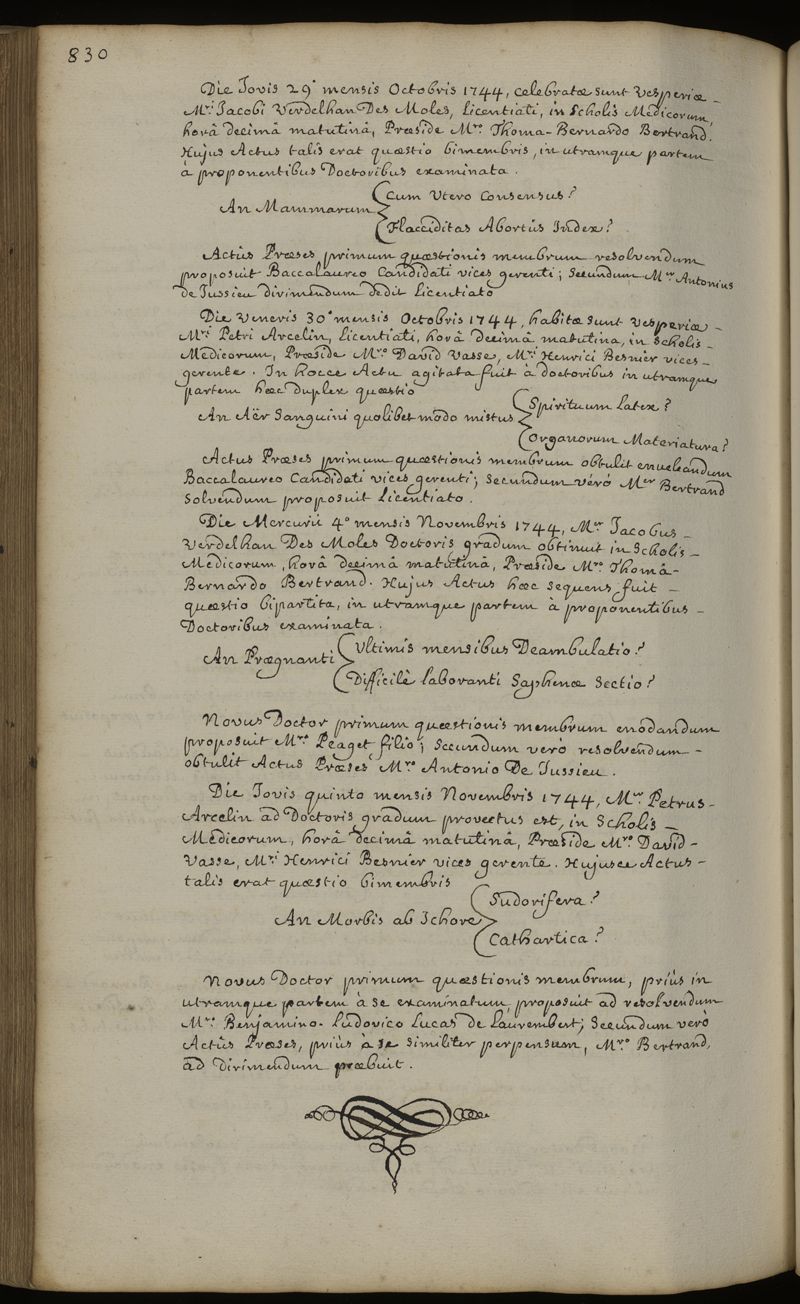 830
Die Jovis 29ª mensis Octobris 1744, celebratæ sunt Vesperiæ -
Mri Jacobi Verdelhan Des Moles, Licentiati, in Scholis Medicorum,
horâ decimâ matutinâ, Præside Mro Thoma-Bernardo Bertrand.
Hujus Actus talis erat quæstio bimembris, in utramque partem
à proponentibus Doctoribus examinata.
Cum Utero Consensus?
An Mammarum
Flacciditas Abortûs Index?
Actûs Præses primum quæstionis membrum resolvendum
proposuit Baccalaureo Candidati vices gerenti; secundum Mer Antonius
De Jussieu dirimendum dedit Licentiato
Die Veneris 30ª mensis Octobris 1744, habitæ sunt Vesperiæ -
Mri Petri Arcelin, Licentiati, horâ decimâ matutina, in Scholis -
Medicorum, Præside Mro David Vasse, Mri Henrici Besnier vices -
gerente. In hocce Actu agitata fuit à doctoribus in utramque
partem hæc duplex quæstio
Spirituum Latex?
An Aër Sanguini quolibet modo mistus
Organorum Materiatura?
Actus Præses primum quæstionis membrum obtulit enucleandum
Baccalaureo Candidati vices gerenti; secundum verò Mer Bertrand
Solvendum proposuit Licentiato.
Die Mercurii 4ª mensis Novembris 1744, Mer Jacobus -
Verdelhan Des Moles Doctoris gradum obtinuit in Scholis -
Medicorum, horâ decimâ matutinâ, Præside Mro Thomâ-
Bernardo Bertrand. Hujus Actus hæc sequens fuit -
quæstio bipartita, in utramque partem à proponentibus -
Doctoribus examinata.
Ultimis mensibus Deambulatio?
An Prægnanti
Difficilè laboranti Saphenæ Sectio?
Novus Doctor primum quæstionis membrum enodandum
proposuit Mro Peaget filio; secundum vero resolvendum -
obtulit Actus Præses Mro Antonio De Jussieu.
Die Jovis quinto mensis Novembris 1744, Mer Petrus -
Arcelin ad Doctoris gradum provectus est, in Scholis -
Medicorum, horâ decimâ matutinâ, Præside Mro David -
Vasse, Mri Henrici Besnier vices gerente. Hujusce Actus -
talis erat quæstio bimembris
Sudorifera?
An Morbis ab Ichore
Cathartica?
Novus Doctor primum quæstionis membrum, priùs in
utramque partem à se examinatum, proposuit ad resolvendum
Mro Benjamino-Ludovico Lucas de Laurembert; Secundum verò
Actûs Præses, priùs à se similiter perpensum, Mro Bertrand,
ad dirimendum præbuit.